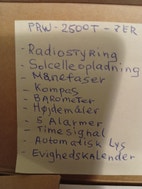 PRW-2500T-7ER
- Radiostyring
- Solcelleopladning
- Månefaser
- Kompas
- BAROMETER
- Højdemåler
- 5 Alarmer
- Timesignal
- Automatisk Lys
- Evighedskalender